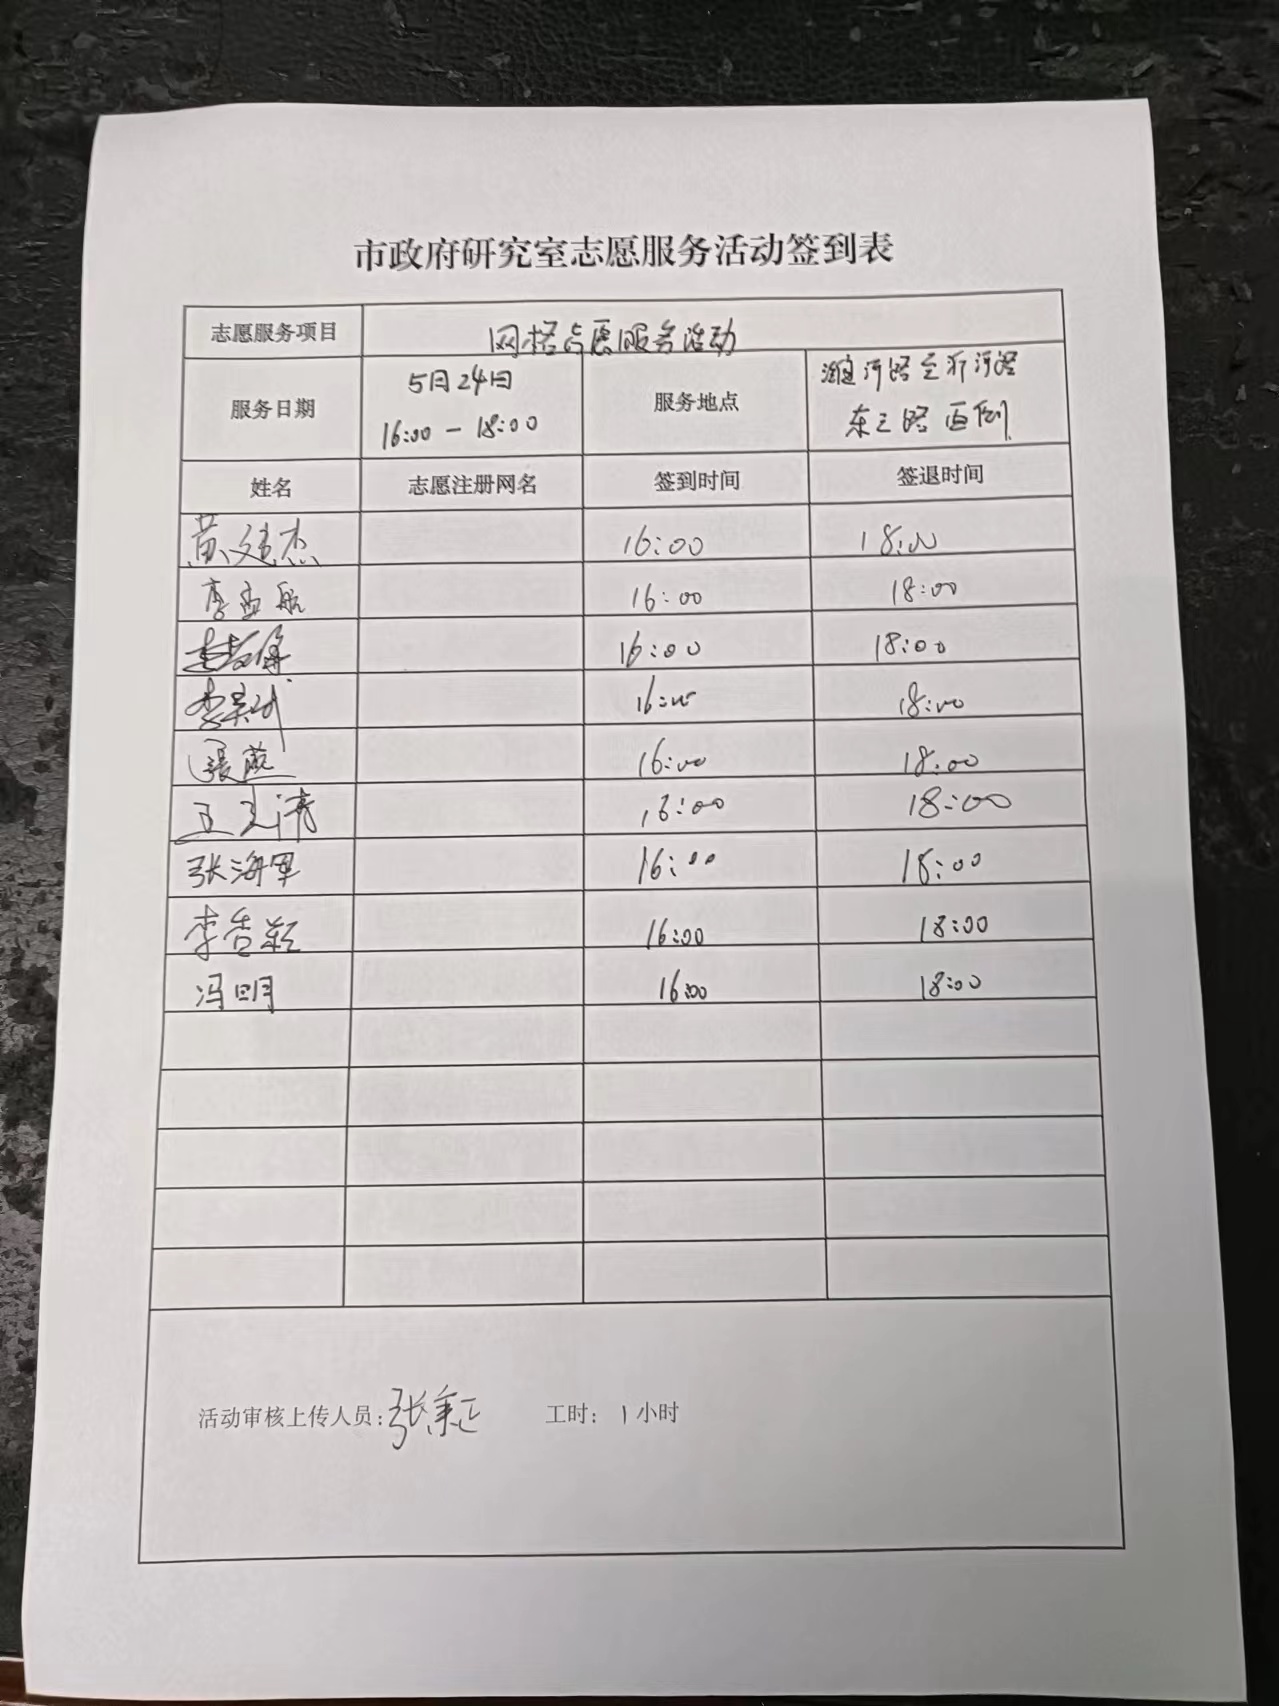 市政府研究室志愿服务活动签到表
志愿服务项目 网格志愿服务活动
服务日期 5月24日 16:00-18:00 服务地点 河路至沂河路 东三路西侧
姓名 志愿注册网名 签到时间 签退时间
黄文杰 16:00 18:00
李孟航 16:00 18:00
16:00 18:00
李 16:00 18:00
張燕 16:00 18:00
王文涛 16:00 18:00
张海军 16:00 18:00
李香颖 16:00 18:00
冯明 16:00 18:00
活动审核上传人员:张秉正 工时: 1小时